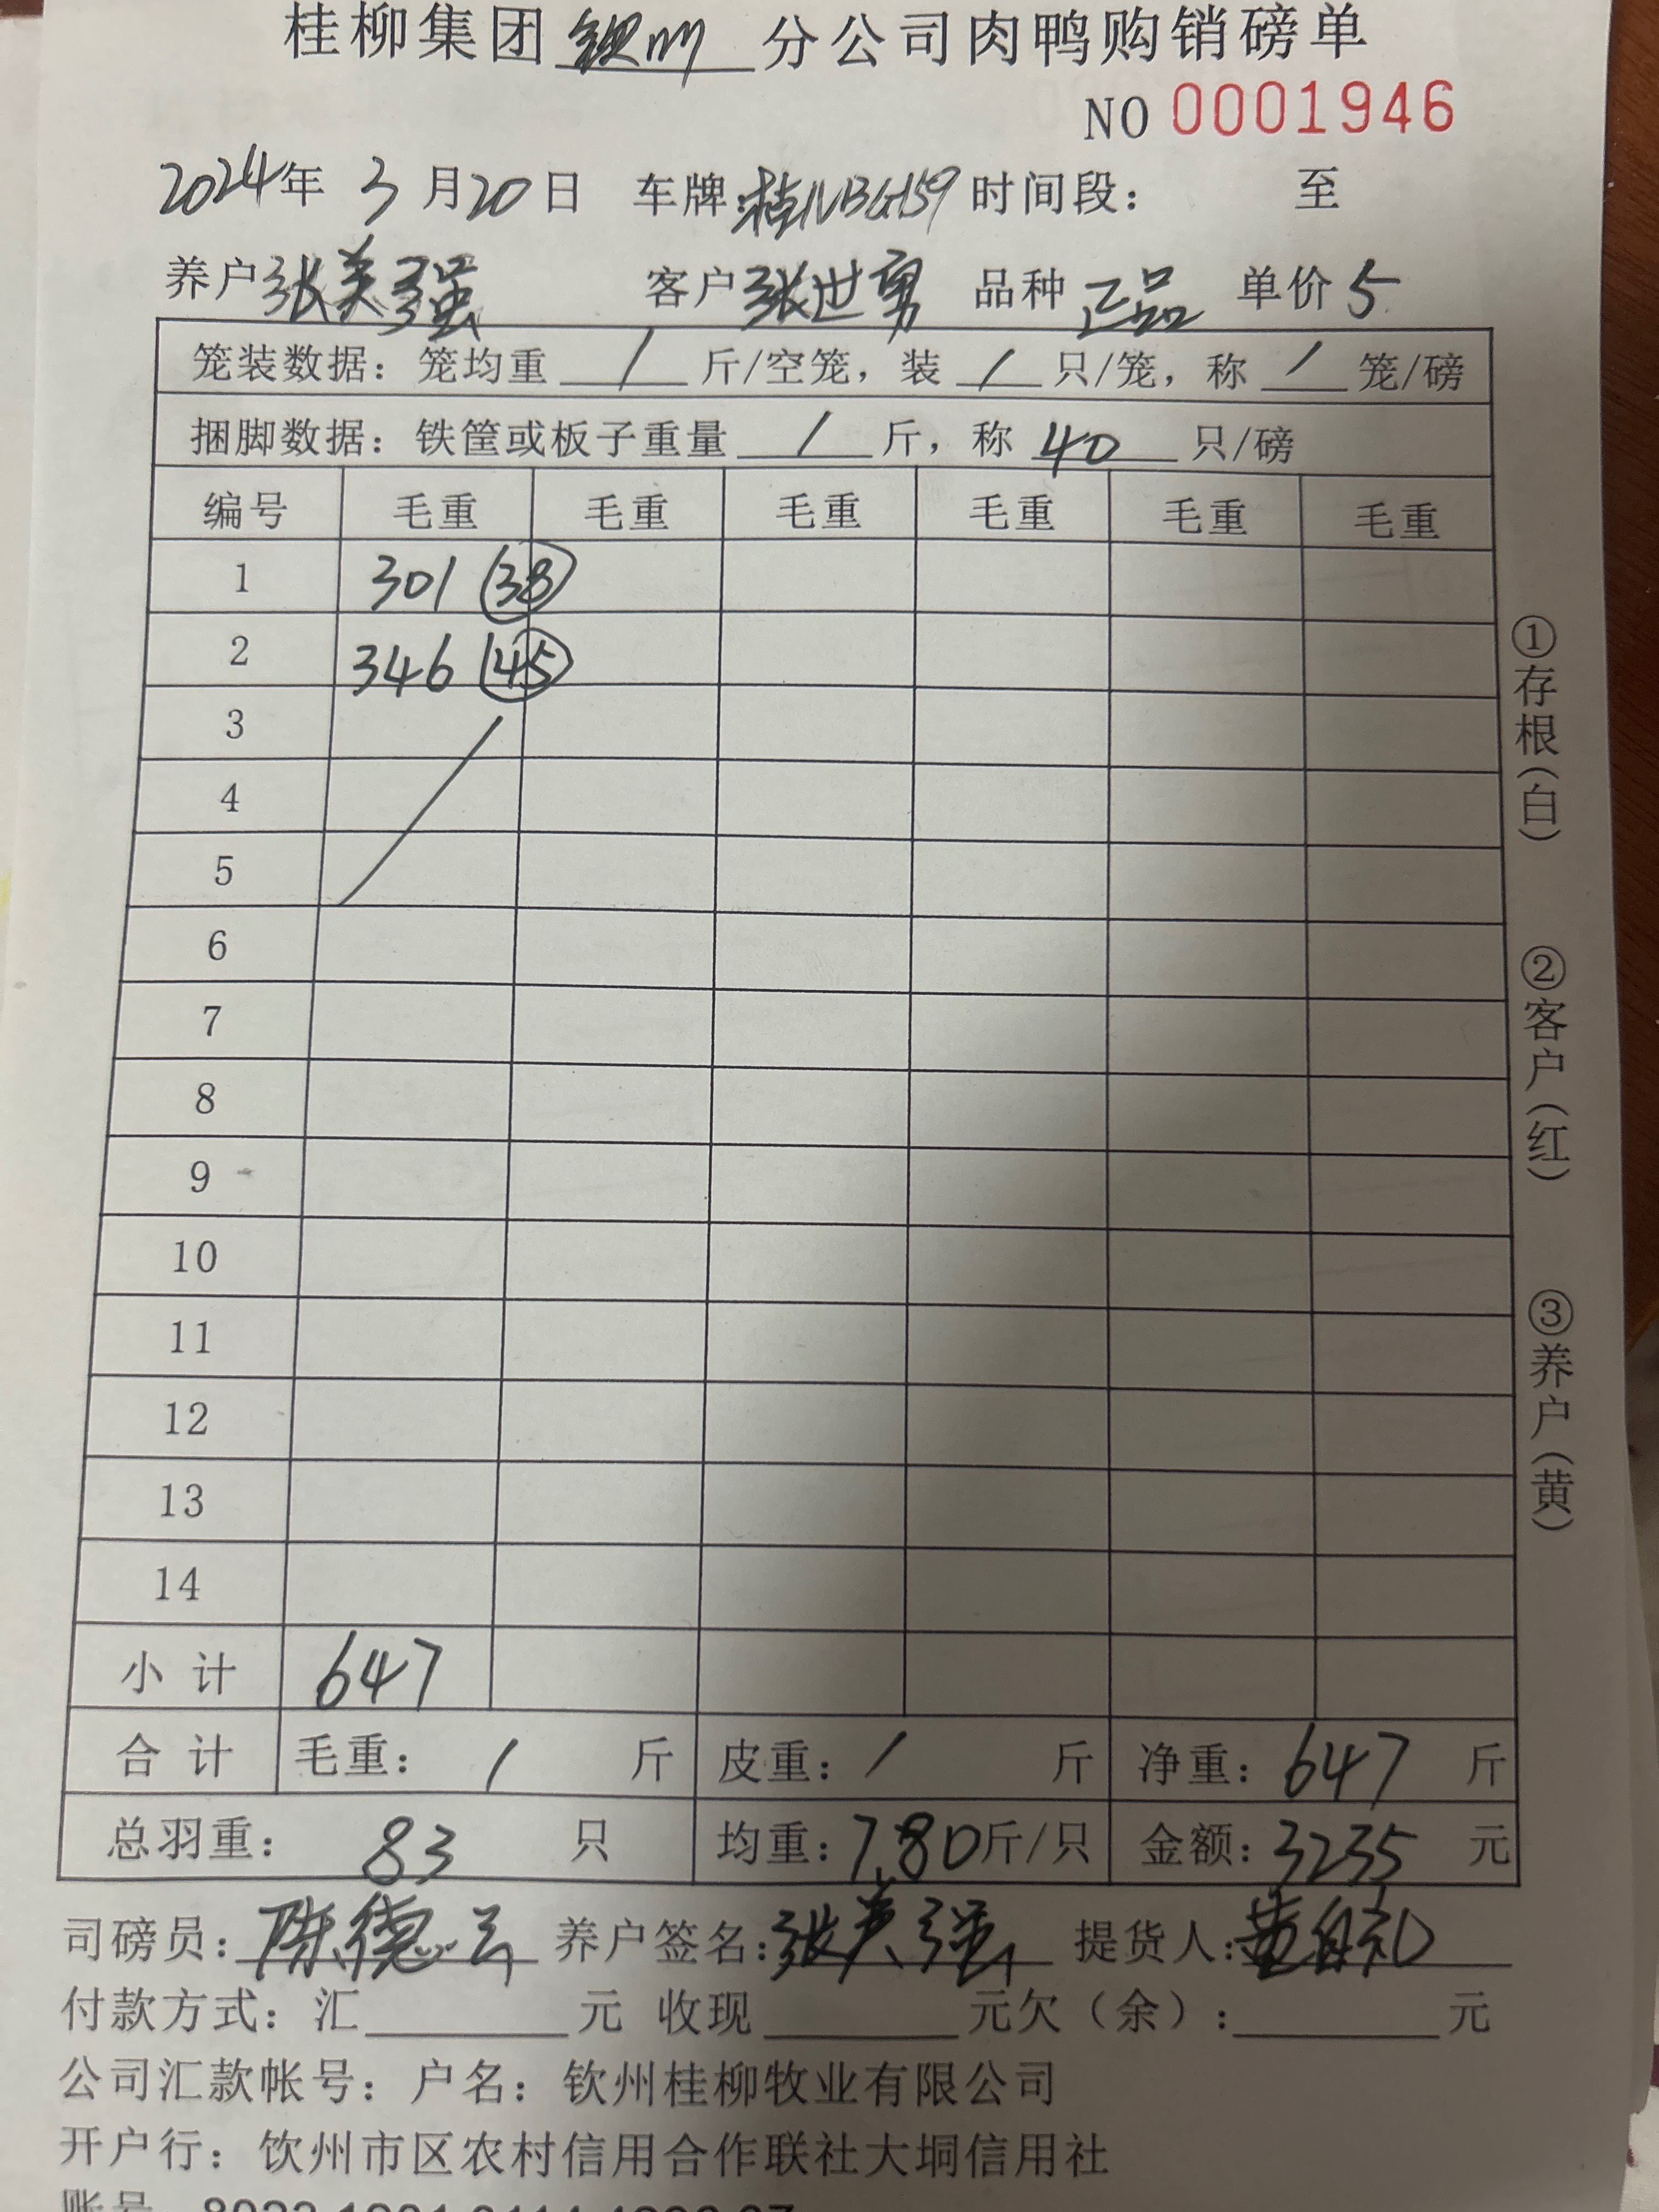 桂柳集团钦州分公司肉鸭购销磅单
NO 0001946
2024年 3月20日 车牌:桂NBG159 时间段: 至
养户张美强 客户张世勇 品种正品 单价5
笼装数据:笼均重/斤/空笼,装/只/笼,称/笼/磅
捆脚数据:铁筐或板子重量/斤,称40只/磅
编号 毛重 毛重 毛重 毛重 毛重 毛重
1 301 38
2 346 45
3
4
5
6
7
8
9
10
11
12
13
14
小计 647
合计 毛重:/斤 皮重:/斤 净重:647斤
总羽重:83只 均重:7.80斤/只 金额:3235元
①存根(白)
②客户(红)
③养户(黄)
司磅员:陈德云 养户签名:张美强 提货人:黄
付款方式:汇 元 收现 元欠(余): 元
公司汇款帐号:户名:钦州桂柳牧业有限公司
开户行:钦州市区农村信用合作联社大垌信用社